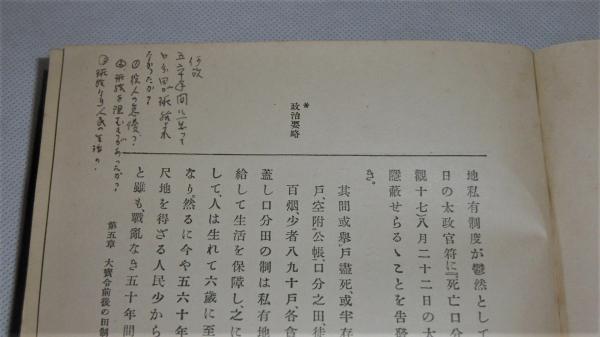 何故
五六十年間に亘って
口分田が班給され
なかったか?
①役人の怠慢?
②班給を阻むものがあったか?
③班給より人民の生活の。
*政治要略
地私有制度が鬱然として
日の太政官符に『死亡口分
觀十七)八月二十二日の太
隱蔽せらるゝことを告發
き。
其間或擧戸盡死、或半存
戸、空附公帳、口分之田、徒
百烟、少者八九十戸、各貪
蓋し口分田の制は私有地
給して生活を保障し、之に
して、人は生れて六歲に至
なり。然るに今や五六十年
尺地を得ざる人民少から
と雖も、戰亂なき五十年間
第五章 大寶令前後の田制